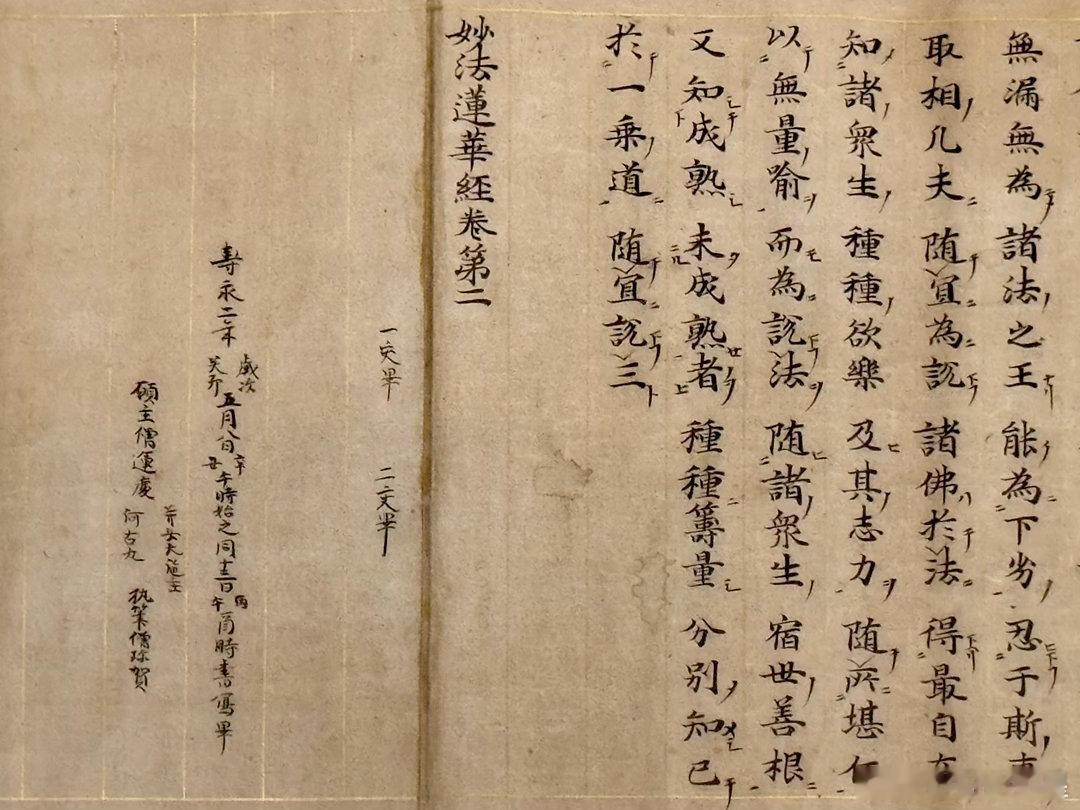 無漏無為 諸法之王 能為下劣 忍于斯
取相凡夫 随宜為説 諸佛於法 得最自在
知諸衆生 種種欲樂 及其志力 随所堪任
以無量喻 而為説法 随諸衆生 宿世善根
又知成熟 未成熟者 種種籌量 分別知已
於一乗道 随宜説三
妙法蓮華經卷第二
一交畢 二交畢
壽永二年歳次癸卯五月八日辛丑午時始之同十三日丙午酉時書寫畢
願主僧運慶 并女大施主阿古丸 執筆僧珎賀